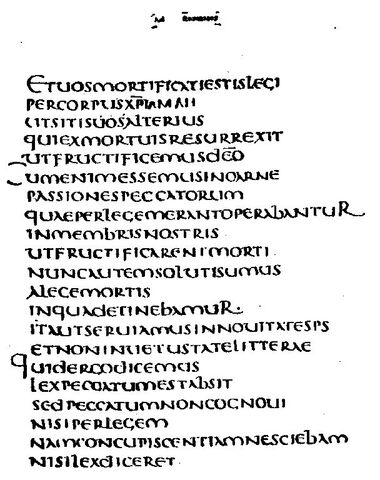 ETUOSMORTIFICATIESTISLEGI
PERCORPUSXPI
UTSITISUOSALTERIUS
QUIEXMORTUISRESURREXIT
UTFRUCTIFICEMUSDEO
CUMENIMESSEMUSINCARNE
PASSIONESPECCATORUM
QUAEPERLEGEMERANTOPERABANTUR
INMEMBRISNOSTRIS
UTFRUCTIFICARENTMORTI
NUNCAUTEMSOLUTISUMUS
ALEGEMORTIS
INQUADETINEBAMUR.
ITAUTSERUIAMUSINNOUITATESPS
ETNONINUETUSTATELITTERAE
QUIDERGODICEMUS
LEXPECCATUMESTABSIT
SEDPECCATUMNONCOGNOUI
NISIPERLEGEM
NAMCONCUPISCENTIAMNESCIEBAM
NISILEXDICERET